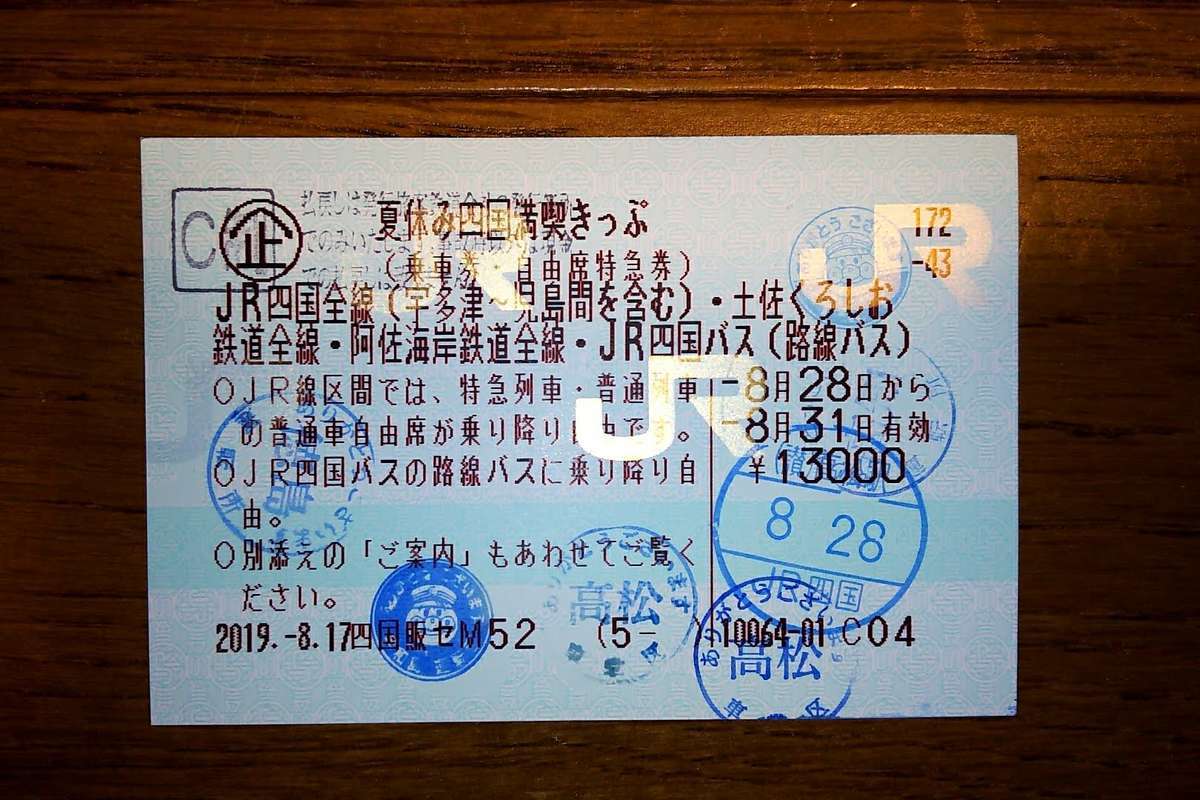 C 企 夏休み四国満喫きっぷ 172
(乗車券・自由席特急券) -43
JR四国全線(宇多津~児島間を含む)・土佐くろしお
鉄道全線・阿佐海岸鉄道全線・JR四国バス(路線バス)
○JR線区間では、特急列車・普通列車 -8月28日から
の普通車自由席が乗り降り自由です。 -8月31日有効
○JR四国バスの路線バスに乗り降り自 ¥13000
由。
○別添えの「ご案内」もあわせてご覧く
ださい。
2019.-8.17四国販セM52 (5- )10064-01 C04
JR
JR
JR
8 28
JR四国
高松
ありがとうござい
高松